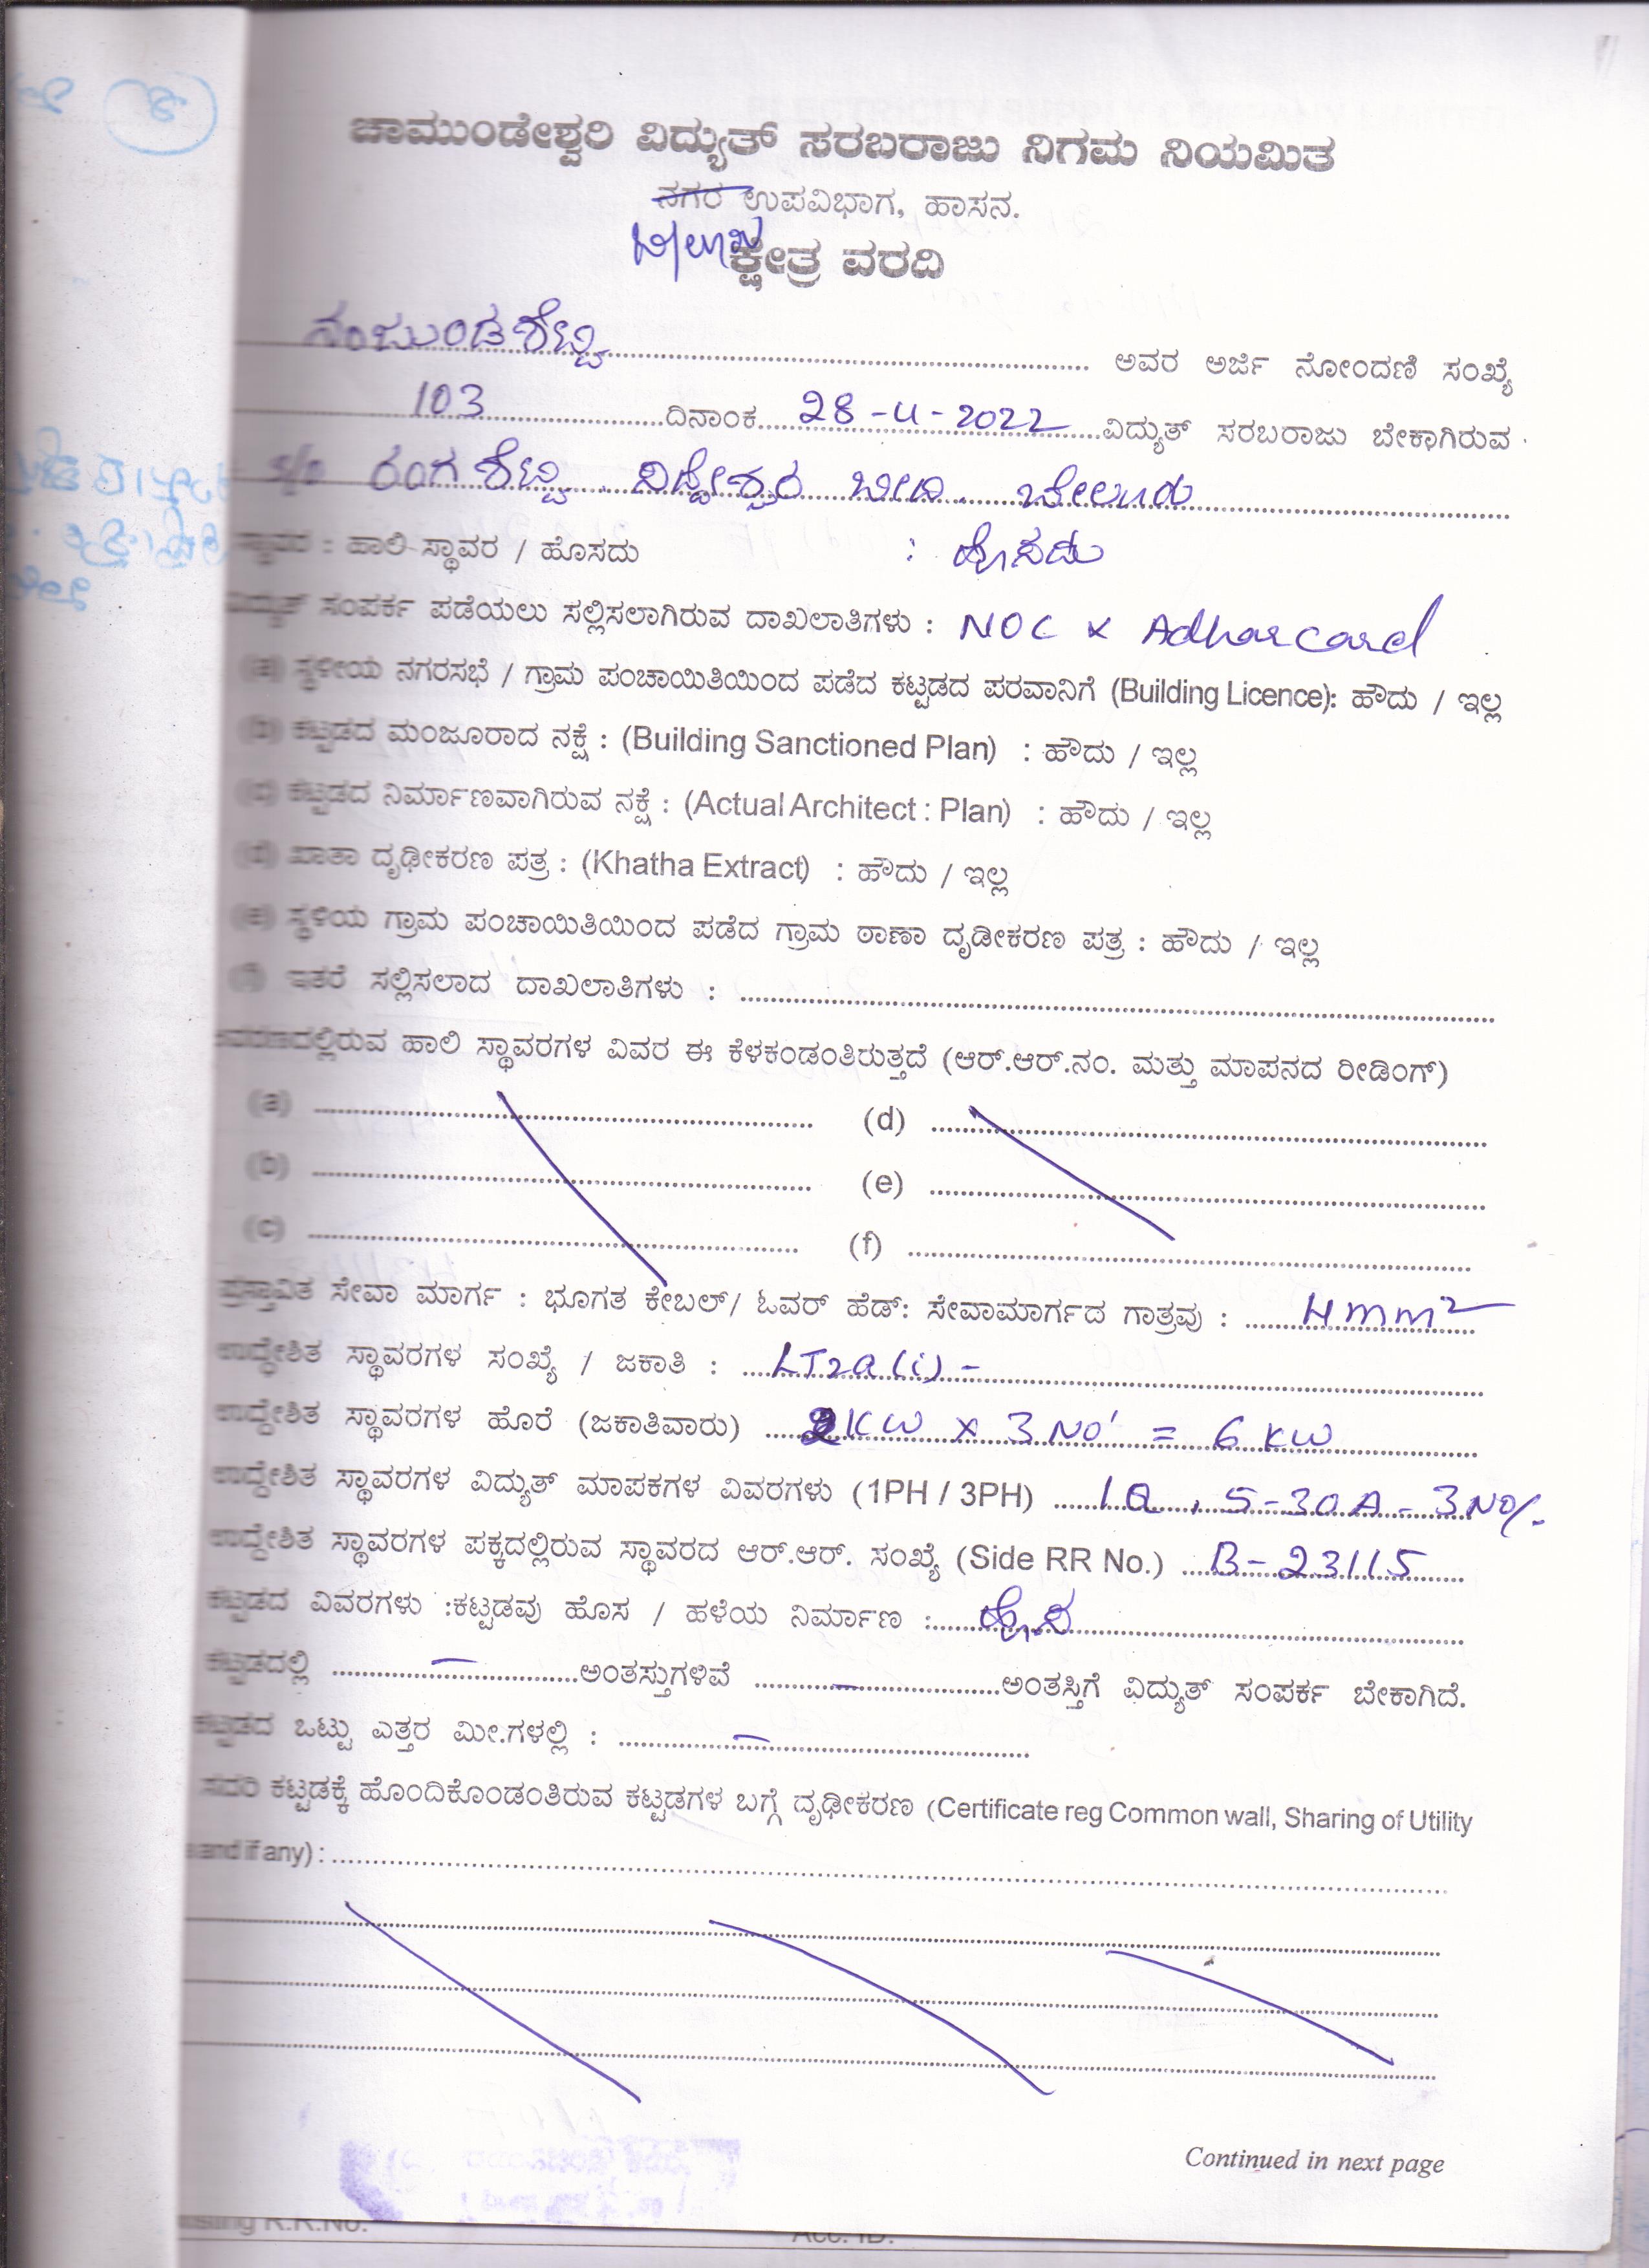 ಚಾಮುಂಡೇಶ್ವರಿ ವಿದ್ಯುತ್ ಸರಬರಾಜು ನಿಗಮ ನಿಯಮಿತ
ನಗರ ಉಪವಿಭಾಗ, ಹಾಸನ.
ಕ್ಷೇತ್ರ ವರದಿ
ನಂಜುಂಡಶೆಟ್ಟಿ ಅವರ ಅರ್ಜಿ ನೋಂದಣಿ ಸಂಖ್ಯೆ
103 ದಿನಾಂಕ 28-4-2022 ವಿದ್ಯುತ್ ಸರಬರಾಜು ಬೇಕಾಗಿರುವ
S/o ರಂಗಶೆಟ್ಟಿ ಬೀದಿ, ಬೇಲೂರು
ಸ್ಥಾವರ : ಹಾಲಿ ಸ್ಥಾವರ / ಹೊಸದು : ಹೊಸದು
ವಿದ್ಯುತ್ ಸಂಪರ್ಕ ಪಡೆಯಲು ಸಲ್ಲಿಸಲಾಗಿರುವ ದಾಖಲಾತಿಗಳು : NOC & Adharcard
(a) ಸ್ಥಳೀಯ ನಗರಸಭೆ / ಗ್ರಾಮ ಪಂಚಾಯಿತಿಯಿಂದ ಪಡೆದ ಕಟ್ಟಡದ ಪರವಾನಿಗೆ (Building Licence): ಹೌದು / ಇಲ್ಲ
(b) ಕಟ್ಟಡದ ಮಂಜೂರಾದ ನಕ್ಷೆ : (Building Sanctioned Plan) : ಹೌದು / ಇಲ್ಲ
(c) ಕಟ್ಟಡದ ನಿರ್ಮಾಣವಾಗಿರುವ ನಕ್ಷೆ : (Actual Architect : Plan) : ಹೌದು / ಇಲ್ಲ
(d) ಖಾತಾ ದೃಢೀಕರಣ ಪತ್ರ : (Khatha Extract) : ಹೌದು / ಇಲ್ಲ
(e) ಸ್ಥಳಿಯ ಗ್ರಾಮ ಪಂಚಾಯಿತಿಯಿಂದ ಪಡೆದ ಗ್ರಾಮ ಠಾಣಾ ದೃಡೀಕರಣ ಪತ್ರ : ಹೌದು / ಇಲ್ಲ
(f) ಇತರೆ ಸಲ್ಲಿಸಲಾದ ದಾಖಲಾತಿಗಳು :
ಆವರಣದಲ್ಲಿರುವ ಹಾಲಿ ಸ್ಥಾವರಗಳ ವಿವರ ಈ ಕೆಳಕಂಡಂತಿರುತ್ತದೆ (ಆರ್.ಆರ್.ನಂ. ಮತ್ತು ಮಾಪನದ ರೀಡಿಂಗ್)
(a) (d)
(b) (e)
(c) (f)
ಪ್ರಸ್ತಾವಿತ ಸೇವಾ ಮಾರ್ಗ : ಭೂಗತ ಕೇಬಲ್/ ಓವರ್ ಹೆಡ್: ಸೇವಾಮಾರ್ಗದ ಗಾತ್ರವು : 4mm²
ಉದ್ದೇಶಿತ ಸ್ಥಾವರಗಳ ಸಂಖ್ಯೆ / ಜಕಾತಿ : LT2a(i) -
ಉದ್ದೇಶಿತ ಸ್ಥಾವರಗಳ ಹೊರೆ (ಜಕಾತಿವಾರು) 2KW x 3 NO' = 6 KW
ಉದ್ದೇಶಿತ ಸ್ಥಾವರಗಳ ವಿದ್ಯುತ್ ಮಾಪಕಗಳ ವಿವರಗಳು (1PH / 3PH) 5-30A - 3NO
ಉದ್ದೇಶಿತ ಸ್ಥಾವರಗಳ ಪಕ್ಕದಲ್ಲಿರುವ ಸ್ಥಾವರದ ಆರ್.ಆರ್. ಸಂಖ್ಯೆ (Side RR No.) B-23115
ಕಟ್ಟಡದ ವಿವರಗಳು :ಕಟ್ಟಡವು ಹೊಸ / ಹಳೆಯ ನಿರ್ಮಾಣ : ಹೊಸ
ಕಟ್ಟಡದಲ್ಲಿ - ಅಂತಸ್ತುಗಳಿವೆ - ಅಂತಸ್ತಿಗೆ ವಿದ್ಯುತ್ ಸಂಪರ್ಕ ಬೇಕಾಗಿದೆ.
ಕಟ್ಟಡದ ಒಟ್ಟು ಎತ್ತರ ಮೀ.ಗಳಲ್ಲಿ : -
ಸದರಿ ಕಟ್ಟಡಕ್ಕೆ ಹೊಂದಿಕೊಂಡಂತಿರುವ ಕಟ್ಟಡಗಳ ಬಗ್ಗೆ ದೃಢೀಕರಣ (Certificate reg Common wall, Sharing of Utility
and if any) :
Continued in next page
R.R.No. Acc. ID.